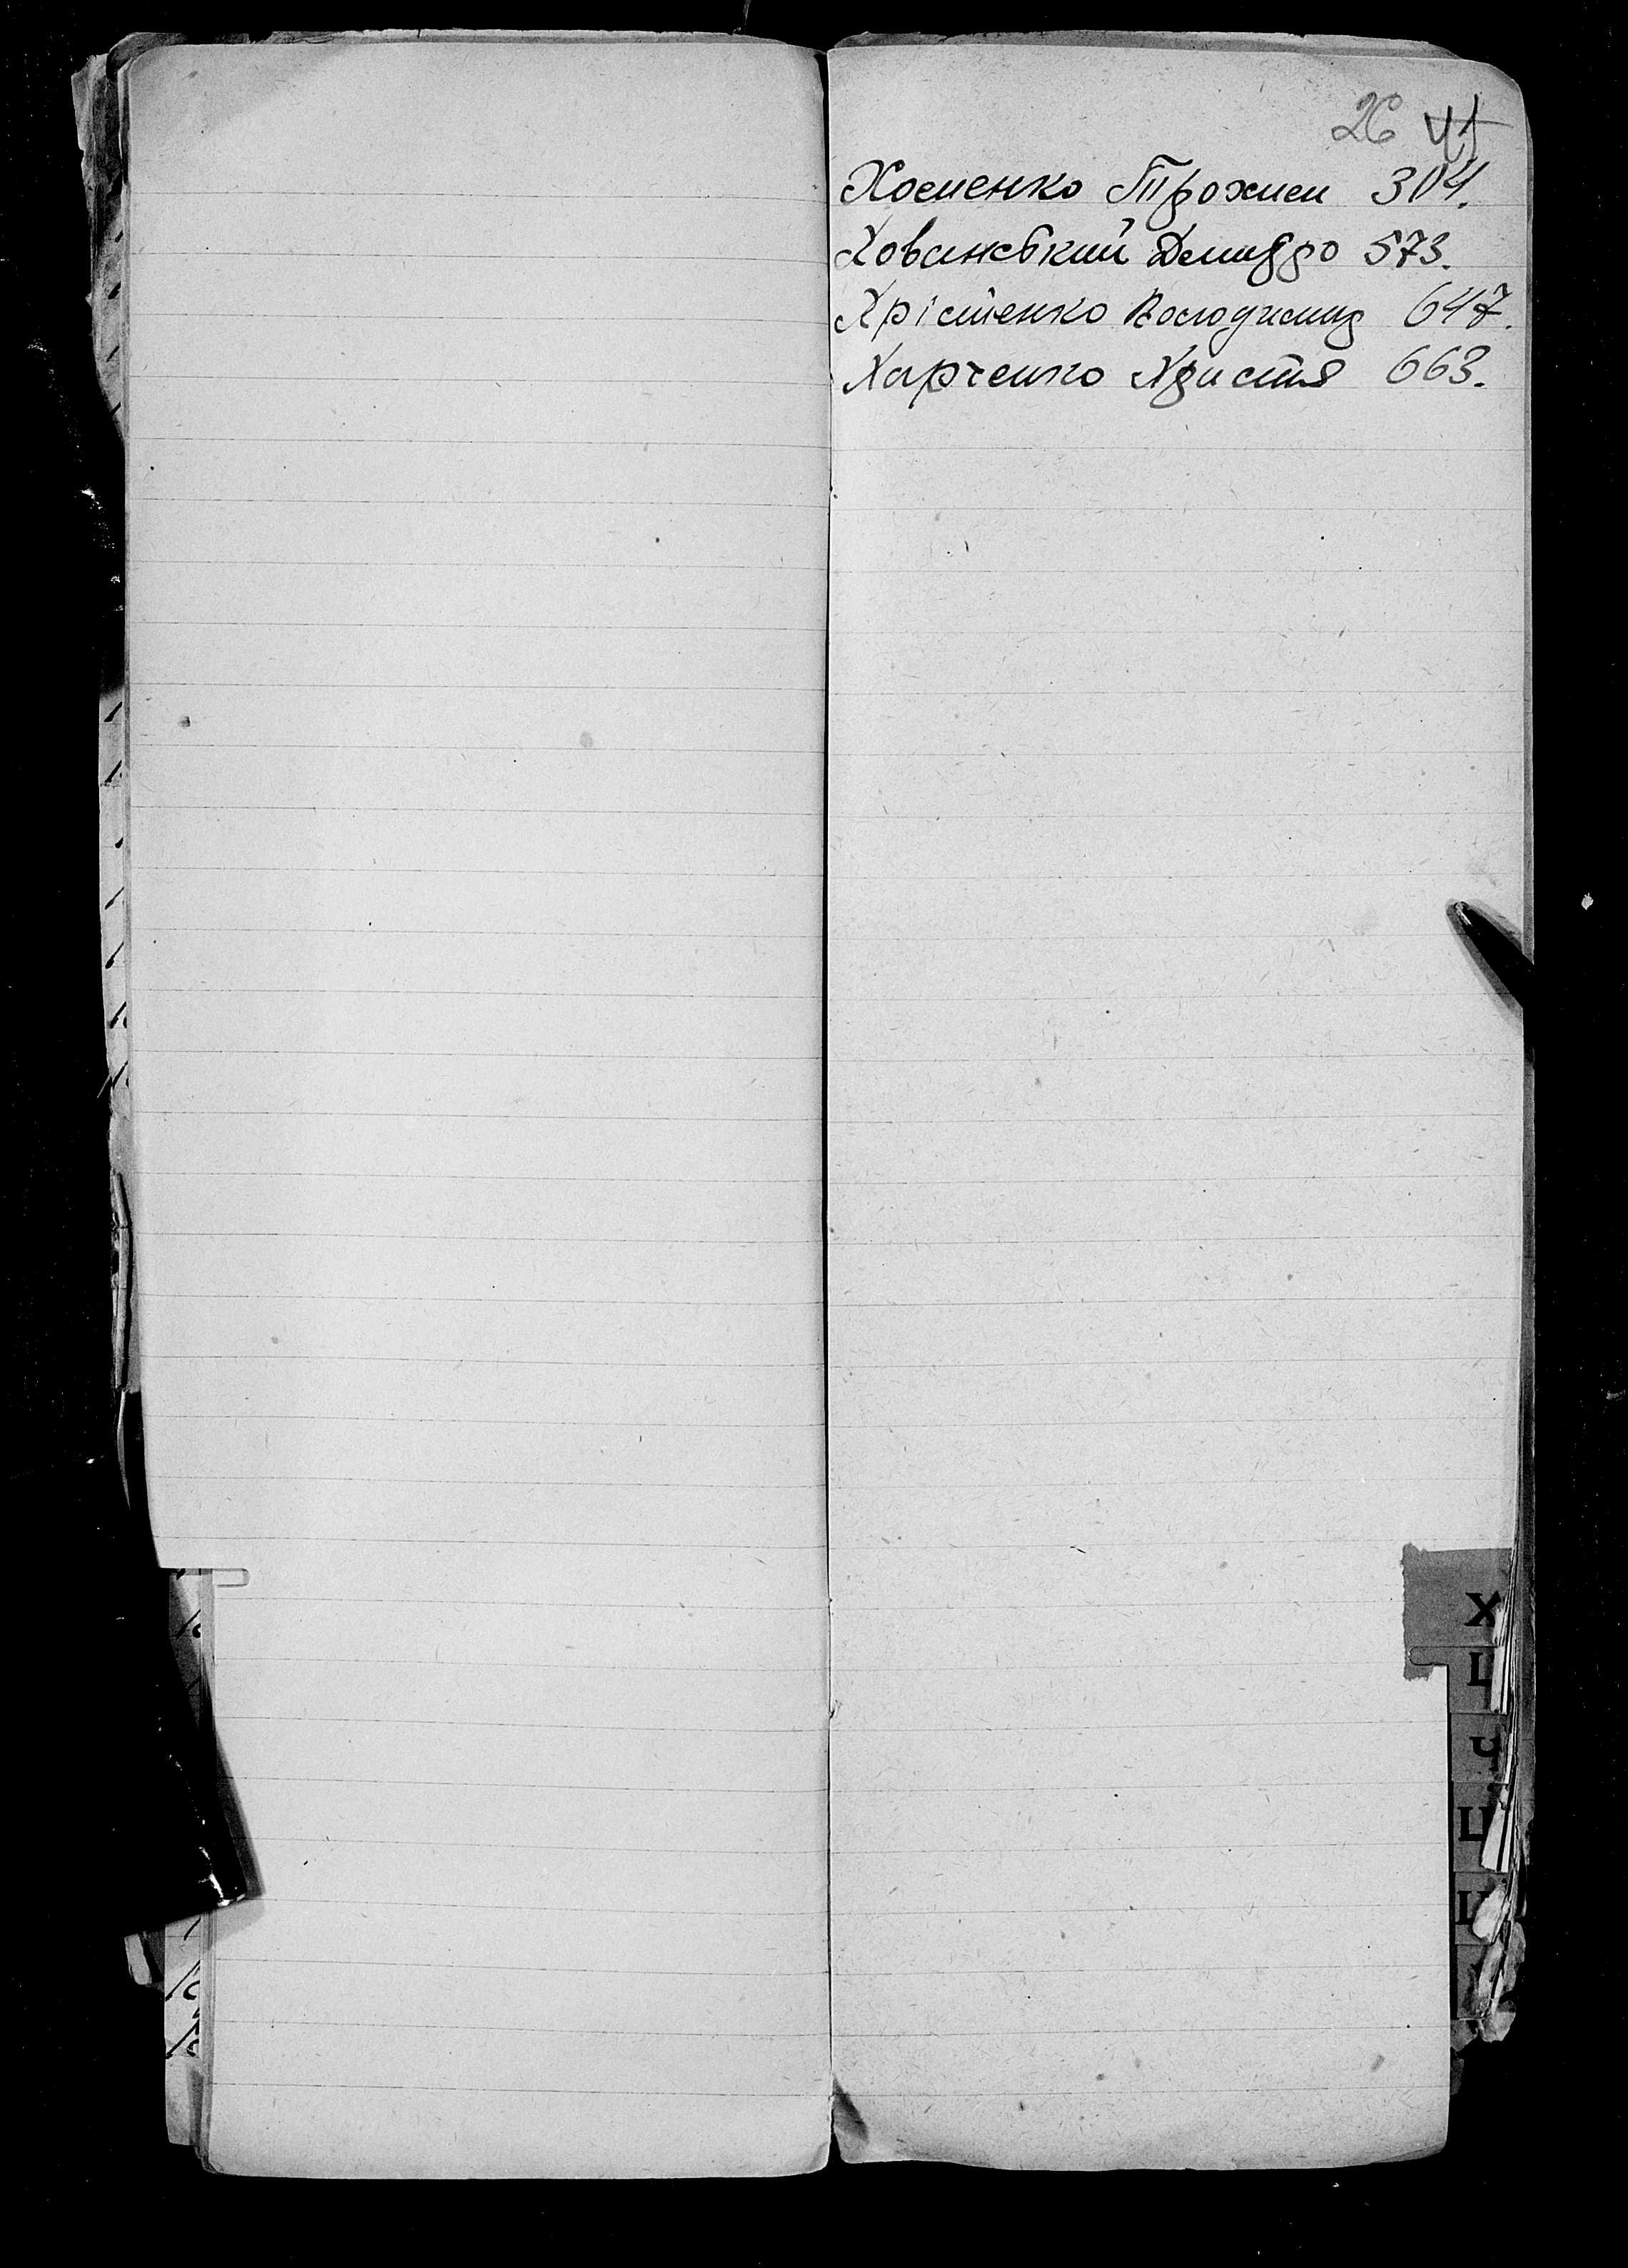 26 41
Хоменко Трохим 304.
Хованський Демидро 573.
Хрістенко Володимир 647.
Харченко Христя 663.
Х
Ч